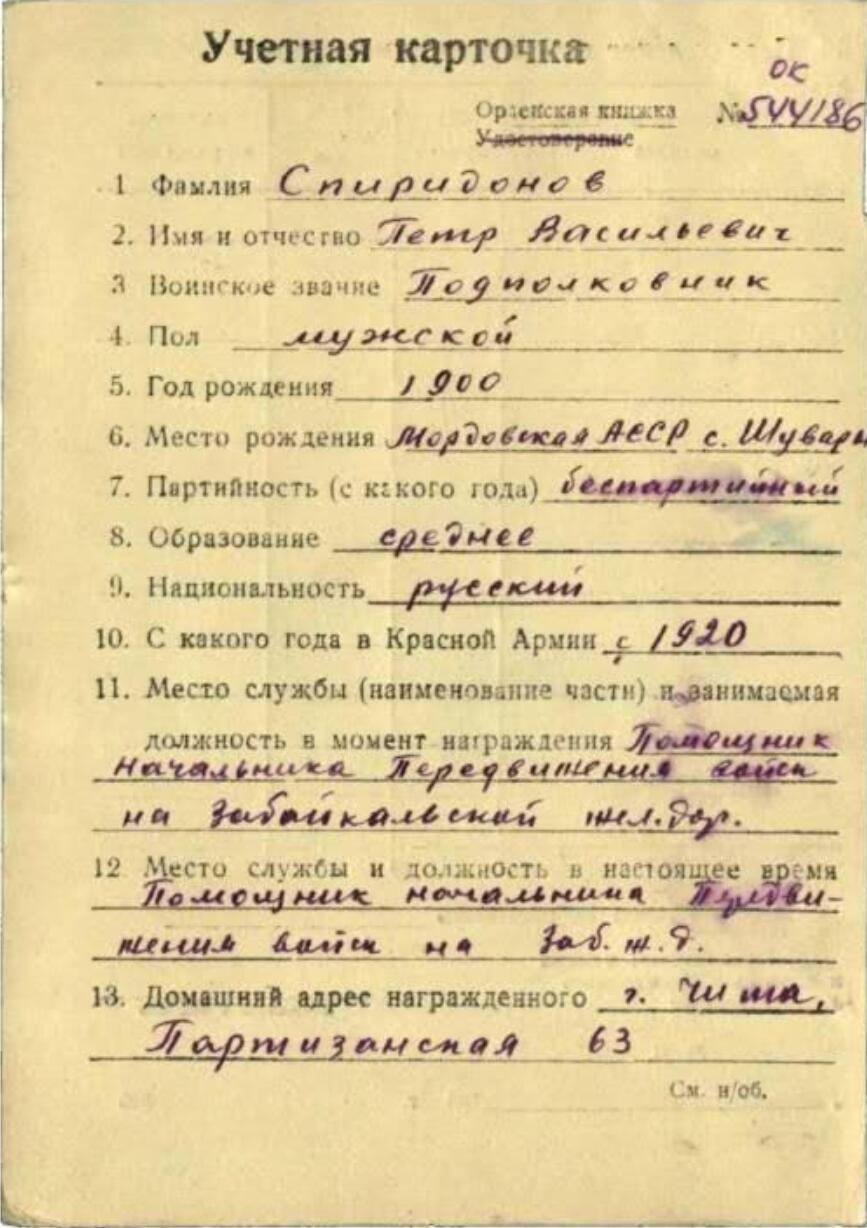 Учетная карточка
ок
Орденская книжка № 544186
Удостоверение
1 Фамлия Спиридонов
2. Имя и отчество Петр Васильевич
3 Воинское звание Подполковник
4. Пол мужской
5. Год рождения 1900
6. Место рождения Мордовская АССР с. Шувары
7. Партийность (с какого года) беспартийный
8. Образование среднее
9. Национальность русский
10. С какого года в Красной Армии с 1920
11. Место службы (наименование части) и занимаемая
должность в момент награждения Помощник
начальника Передвижения войск
на Забайкальской жел.дор.
12 Место службы и должность в настоящее время
Помощник начальника Передви-
жения войск на Заб. ж.д.
13. Домашний адрес награжденного г. Чита,
Партизанская 63
См. н/об.